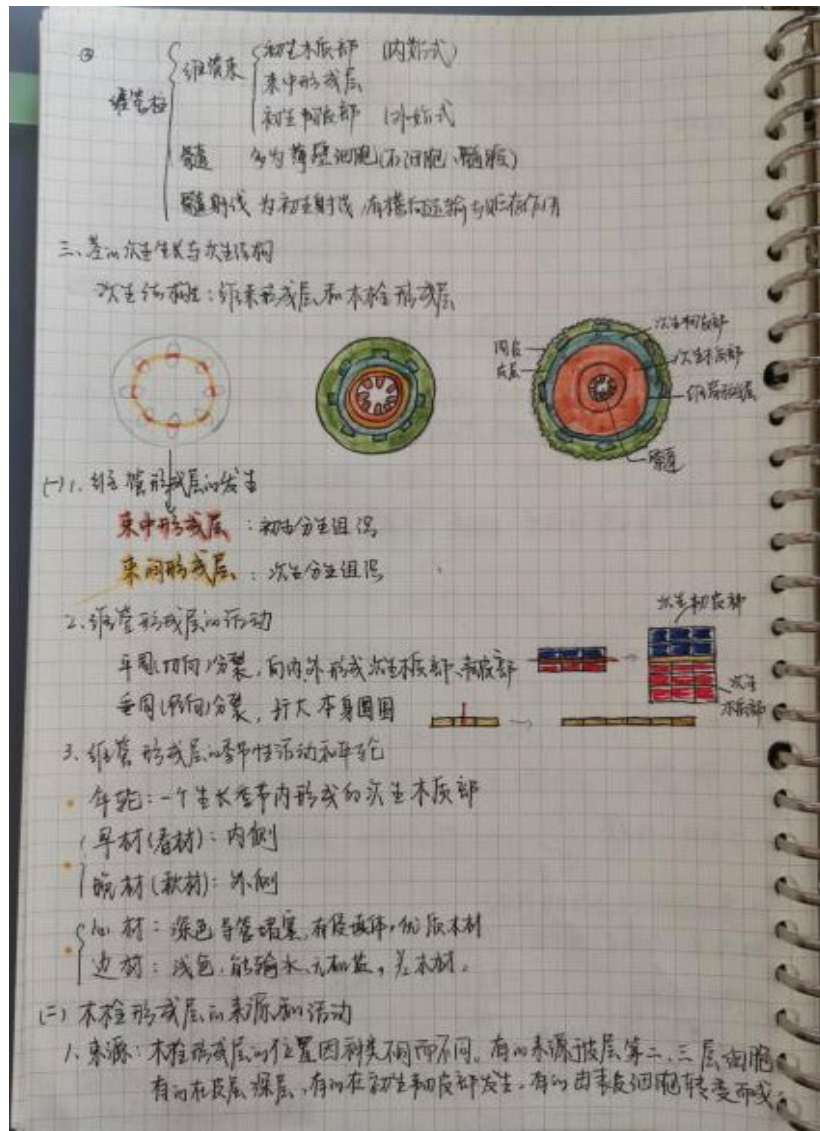 ③
维管柱
维管束
初生木质部 (内始式)
束中形成层
初生韧皮部 (外始式
髓 多为薄壁细胞(石细胞、髓腔)
髓射线 为初生射线,有横向运输与贮存作用
三、茎的次生生长与次生结构
次生结构:维束形成层和木栓形成层
周皮
皮层
次生韧皮部
次生木质部
维管形成层
髓
(一) 1. 维管形成层的发生
束中形成层:初生分生组织
束间形成层:次生分生组织
2、维管形成层的活动
平周(切向)分裂,向内、外形成次生木质部、韧皮部
垂周(径向)分裂,扩大本身圆周
次生韧皮部
次生
木质部
3、维管形成层的季节性活动和年轮
年轮:一个生长季节内形成的次生木质部
早材(春材):内侧
晚材(秋材):外侧
心材:深色导管堵塞,有侵填体,优质木材
边材:浅色,能输水、无机盐,差木材。
(二) 木栓形成层的来源和活动
1、来源:木栓形成层的位置因种类不同而不同。有的来源于皮层第二、三层细胞
有的在皮层深层,有的在初生韧皮部发生,有的由表皮细胞转变而成。